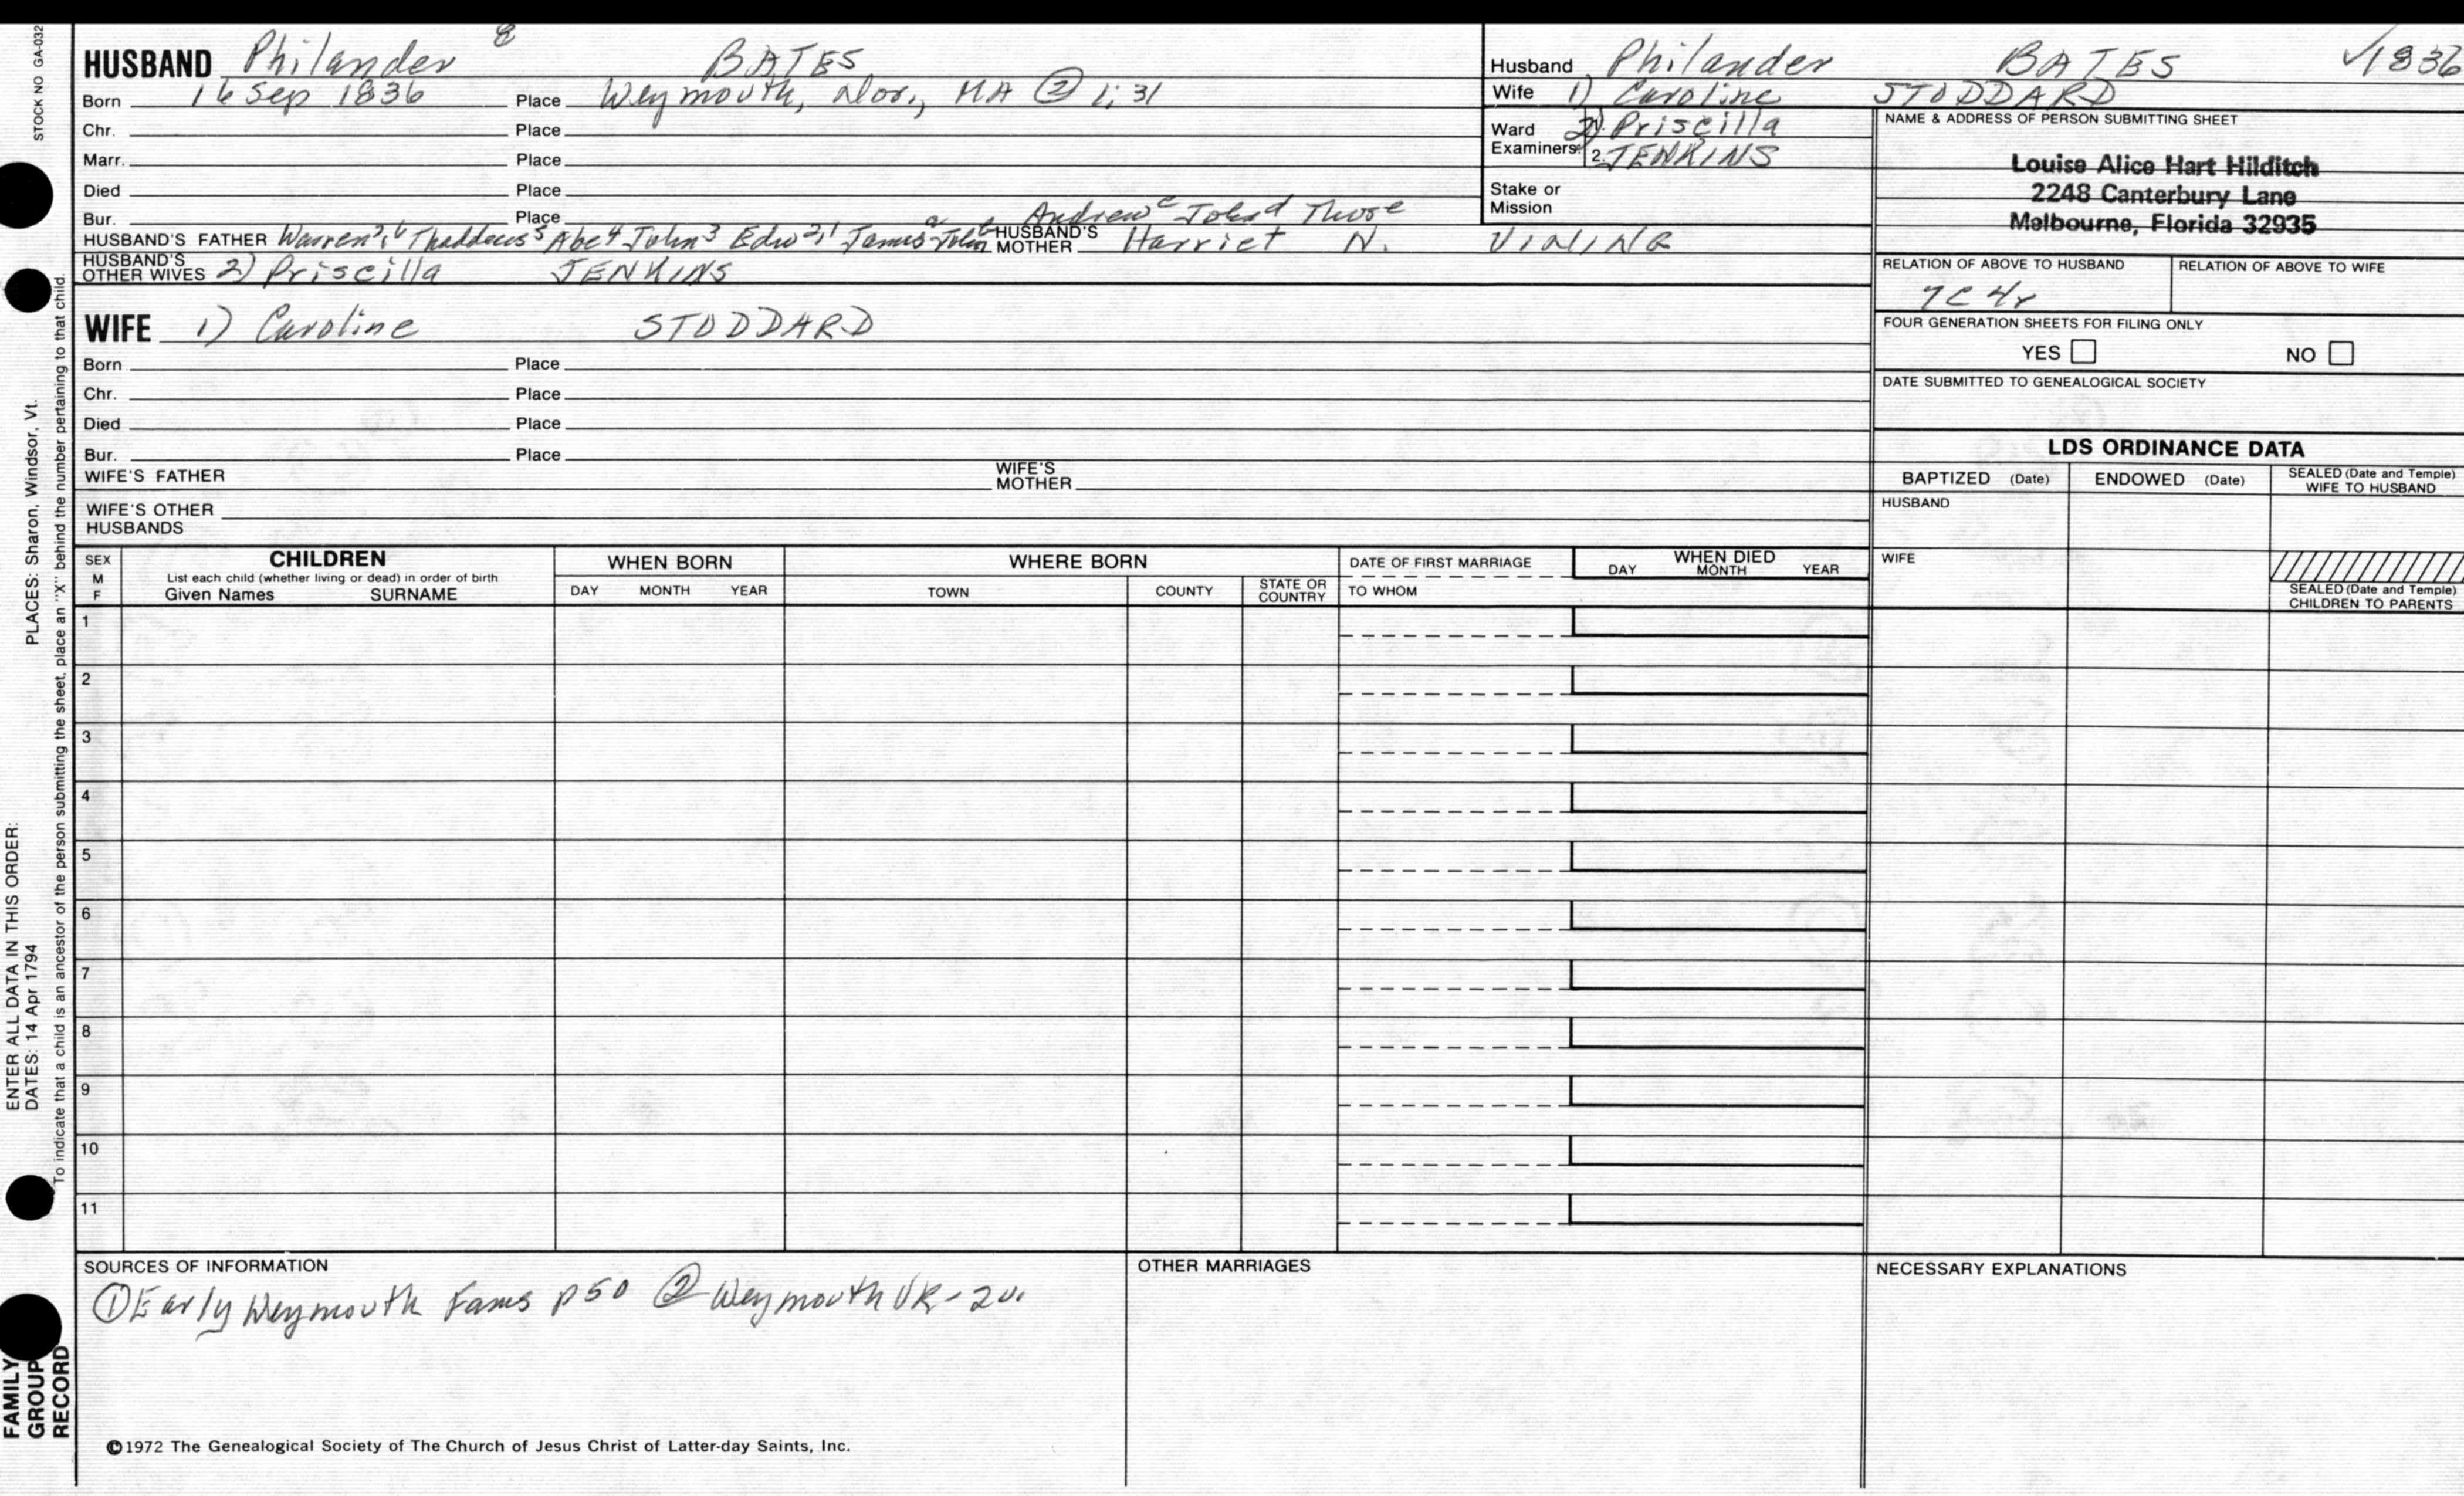 STOCK NO GA-032
HUSBAND Philander 8 BATES
Born 16 Sep 1836 Place Weymouth, Nor., MA ② 1;31
Chr. Place
Marr. Place
Died Place
Bur. Place Andrew c John d Thos e
HUSBAND'S FATHER Warren 7,6 Thaddeus 5 Abe 4 John 3 Edw 2,1 James a John b HUSBAND'S MOTHER Harriet N. VINING
HUSBAND'S OTHER WIVES 2) Priscilla JENKINS
WIFE 1) Caroline STODDARD
Born Place
Chr. Place
Died Place
Bur. Place
WIFE'S FATHER WIFE'S MOTHER
WIFE'S OTHER HUSBANDS
Husband Philander BATES √1836
Wife 1) Caroline STODDARD
Ward Examiners: 2) Priscilla
2. JENKINS
Stake or Mission
NAME & ADDRESS OF PERSON SUBMITTING SHEET
Louise Alice Hart Hilditch
2248 Canterbury Lane
Melbourne, Florida 32935
RELATION OF ABOVE TO HUSBAND RELATION OF ABOVE TO WIFE
7C 4r
FOUR GENERATION SHEETS FOR FILING ONLY
YES NO
DATE SUBMITTED TO GENEALOGICAL SOCIETY
LDS ORDINANCE DATA
BAPTIZED (Date) ENDOWED (Date) SEALED (Date and Temple) WIFE TO HUSBAND
HUSBAND
WIFE
SEALED (Date and Temple) CHILDREN TO PARENTS
SEX M F
CHILDREN
List each child (whether living or dead) in order of birth
Given Names SURNAME
WHEN BORN
DAY MONTH YEAR
WHERE BORN
TOWN COUNTY STATE OR COUNTRY
DATE OF FIRST MARRIAGE
TO WHOM
WHEN DIED
DAY MONTH YEAR
1
2
3
4
5
6
7
8
9
10
11
SOURCES OF INFORMATION
① Early Weymouth Fams p50 ② Weymouth VR-2v.
OTHER MARRIAGES
NECESSARY EXPLANATIONS
©1972 The Genealogical Society of The Church of Jesus Christ of Latter-day Saints, Inc.
FAMILY GROUP RECORD
ENTER ALL DATA IN THIS ORDER:
DATES: 14 Apr 1794 PLACES: Sharon, Windsor, Vt.
To indicate that a child is an ancestor of the person submitting the sheet, place an "X" behind the number pertaining to that child.